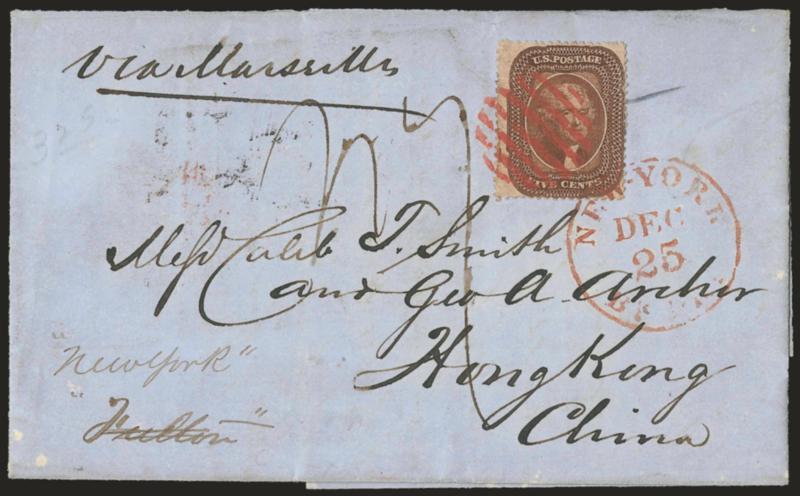 Via Marseilles
U.S. POSTAGE
FIVE CENTS.
NEW-YORK
DEC
25
325
Messrs Caleb T. Smith
and Geo A. Archer
Hong Kong
China
"New York"
"Fulton"